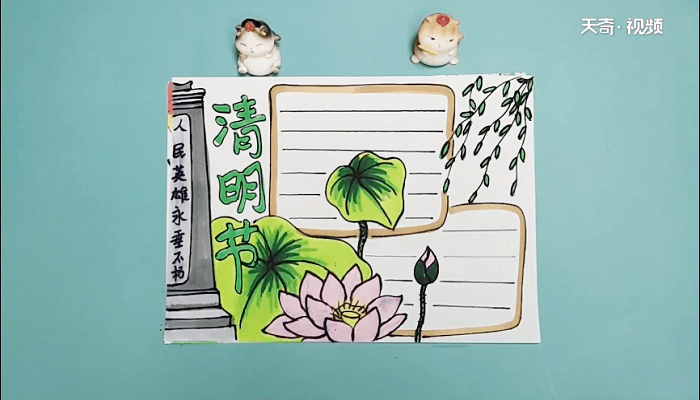 天奇·视频
清明节
人民英雄永垂不朽